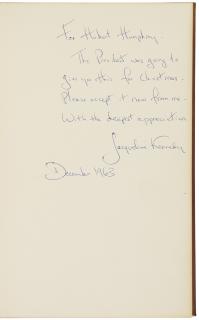 For Hubert Humphrey -
The President was going to
give you this for Christmas -
Please accept it now from me -
With the deepest appreciation
Jacqueline Kennedy
December 1963